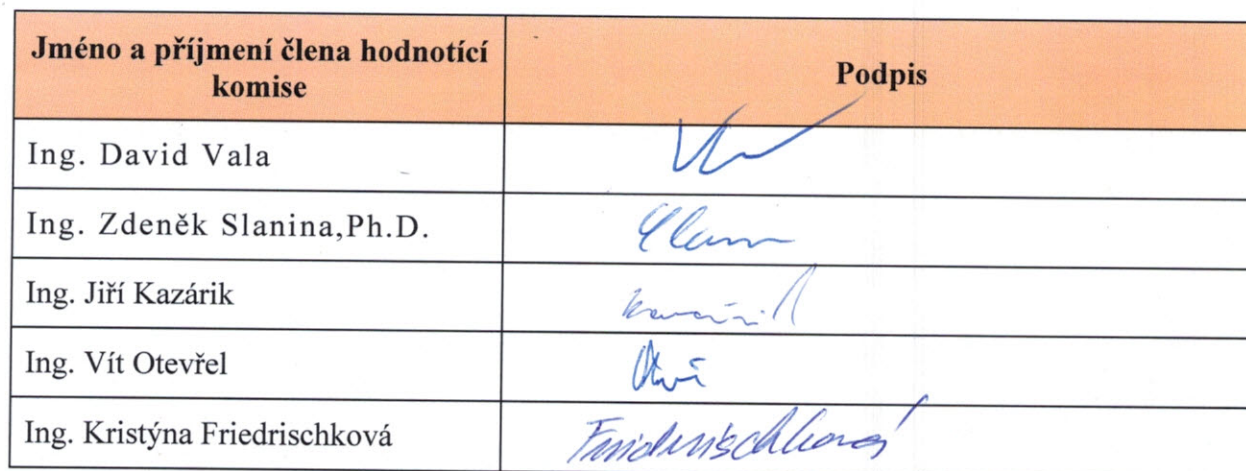 Jméno a příjmení člena hodnotící
komise
Podpis
Ing. David Vala
Ing. Zdeněk Slanina,Ph.D.
Ing. Jiří Kazárik
Ing. Vít Otevřel
Ing. Kristýna Friedrischková Friedrischková